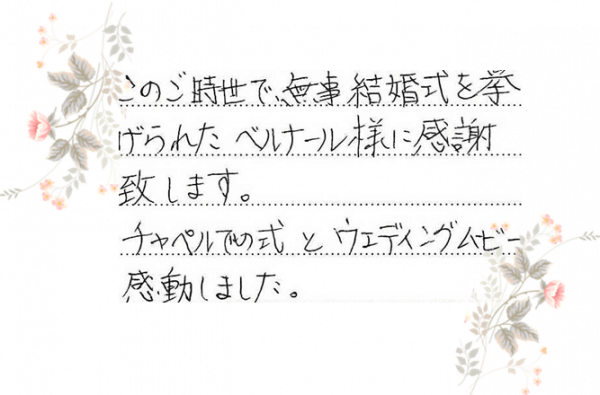 このご時世で、無事結婚式を挙
げられた ベルナール様に感謝
致します。
チャペルでの式 と ウエディングムービー
感動しました。